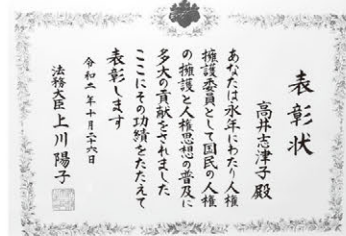 表彰状
高井志津子殿
あなたは永年にわたり人権
擁護委員として国民の人権
の擁護と人権思想の普及に
多大の貢献をされました
ここにその功績をたたえて
表彰します
令和二年十月二十六日
法務大臣 上川陽子